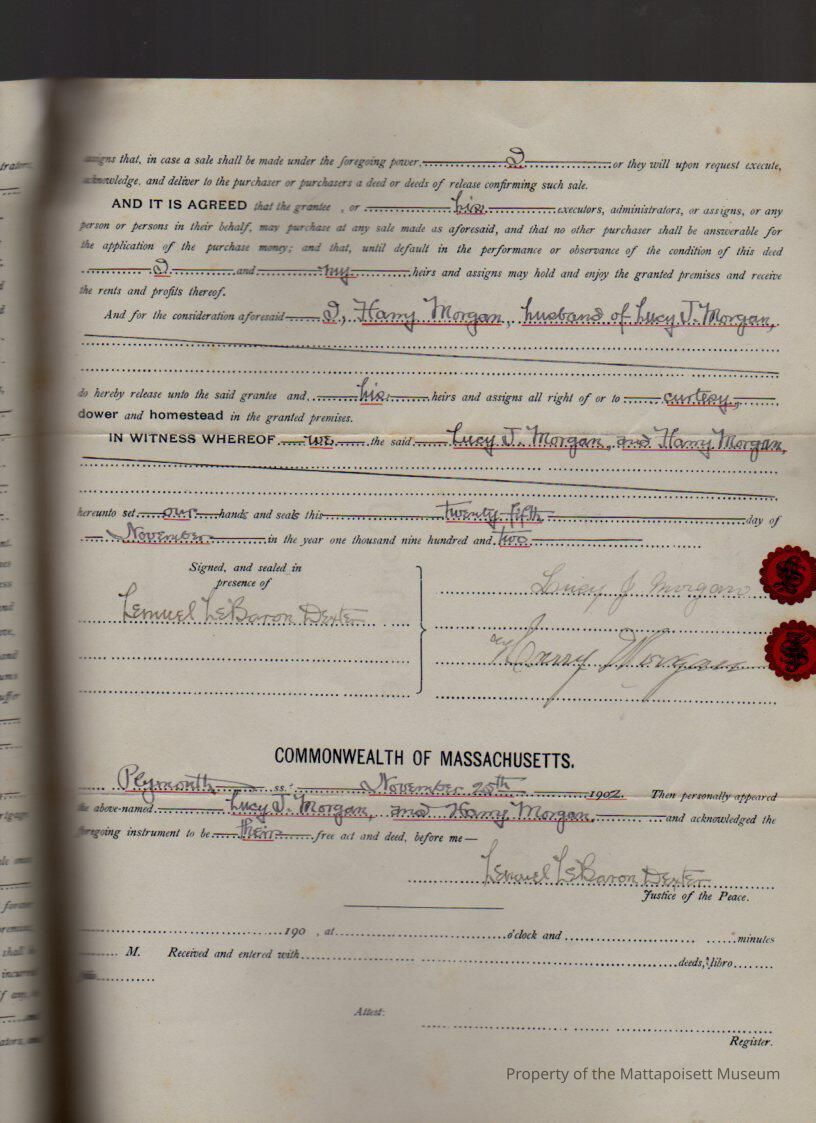 assigns that, in case a sale shall be made under the foregoing power, I or they will upon request execute,
acknowledge, and deliver to the purchaser or purchasers a deed or deeds of release confirming such sale.
AND IT IS AGREED that the grantee , or his executors, administrators, or assigns, or any
person or persons in their behalf, may purchase at any sale made as aforesaid, and that no other purchaser shall be answerable for
the application of the purchase money; and that, until default in the performance or observance of the condition of this deed
I and my heirs and assigns may hold and enjoy the granted premises and receive
the rents and profits thereof.
And for the consideration aforesaid I, Harry Morgan, husband of Lucy J. Morgan,
do hereby release unto the said grantee and his heirs and assigns all right of or to curtesy,
dower and homestead in the granted premises.
IN WITNESS WHEREOF we the said Lucy J. Morgan, and Harry Morgan,
hereunto set our hands and seals this twenty fifth day of
November in the year one thousand nine hundred and two
Signed, and sealed in
presence of
Lemuel LeBaron Dexter
Lucy J Morgan
Harry Morgan
COMMONWEALTH OF MASSACHUSETTS.
Plymouth ss. November 25th 1902. Then personally appeared
the above-named Lucy J. Morgan, and Harry Morgan, and acknowledged the
foregoing instrument to be their free act and deed, before me—
Lemuel LeBaron Dexter
Justice of the Peace.
190 , at o'clock and minutes
M. Received and entered with deeds, libro
folio
Attest:
Register.
Property of the Mattapoisett Museum